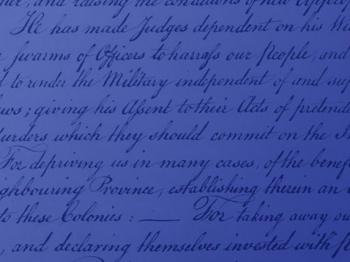 and raising the conditions of new
He has made Judges dependent on his
swarms of Officers to harrass our People, and
to under the Military independent of and
giving his Assent to their Acts of pretended
which they should commit on the
For depriving us in many cases, of the
Province, establishing therein an
to these Colonies : — For taking away
, and declaring themselves invested with